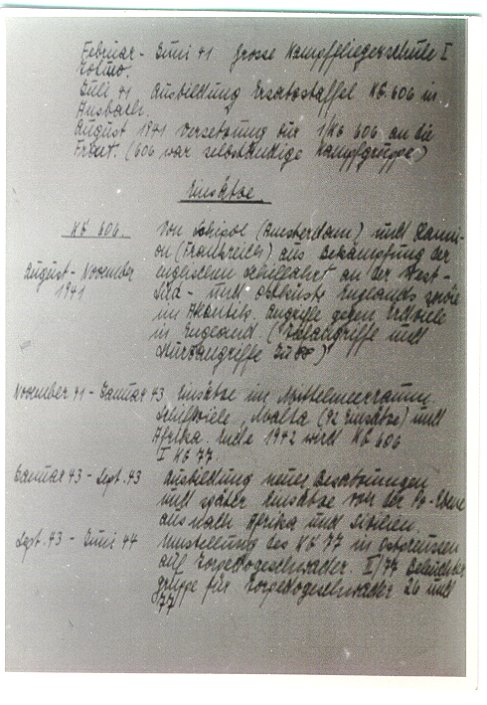 Februar - Juni 41 Grosse Kampffliegerschule I
Juli 41 Ausbildung Ersatzstaffel KG. 606 in
Ansbach.
August 1941 Versetzung zur 1/KG 606 an die
Front. (606 war selbständige Kampfgruppe)
Einsätze.
KG 606.
August - November
1941
Von Schipol (Amsterdam) und Lanni-
on (Frankreich) aus Bekämpfung der
englischen Schiffahrt an der West-
Süd- und Ostküste Englands sowie
im Atlantik. Angriffe gegen Erdziele
in England (Zielangriffe und
Sturzangriffe Ju 88)
November 41 - Januar 43 Einsätze im Mittelmeerraum
Schiffsziele, Malta (92 Einsätze) und
Afrika. Ende 1942 wird KG 606
I KG 77
Januar 43 - Sept. 43 Ausbildung neuer Besatzungen
und später Einsätze von der Po-Ebene
aus nach Afrika und Sizilien.
Sept. 43 - Juni 44 Umstellung des KG 77 in Ostpreussen
auf Torpedogeschwader. I/77 Beleuchter
gruppe für Torpedogeschwader 26 und
77